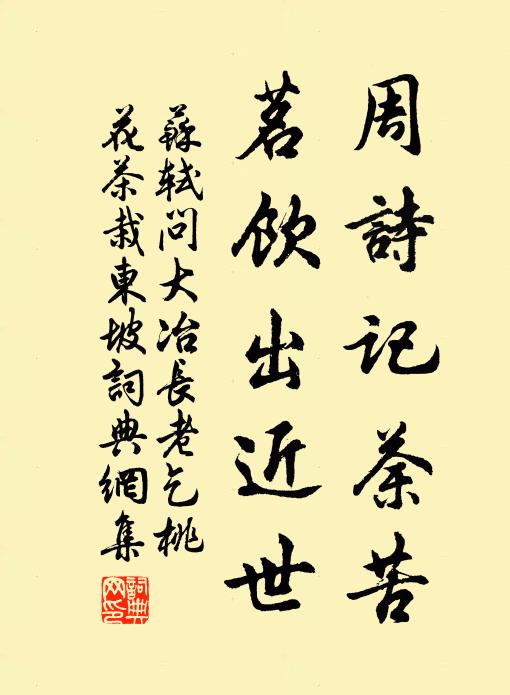 周詩記茶苦
茗飲出近世
蘇軾問大冶長老乞桃
花茶栽東坡詞典網集
詞典
网印